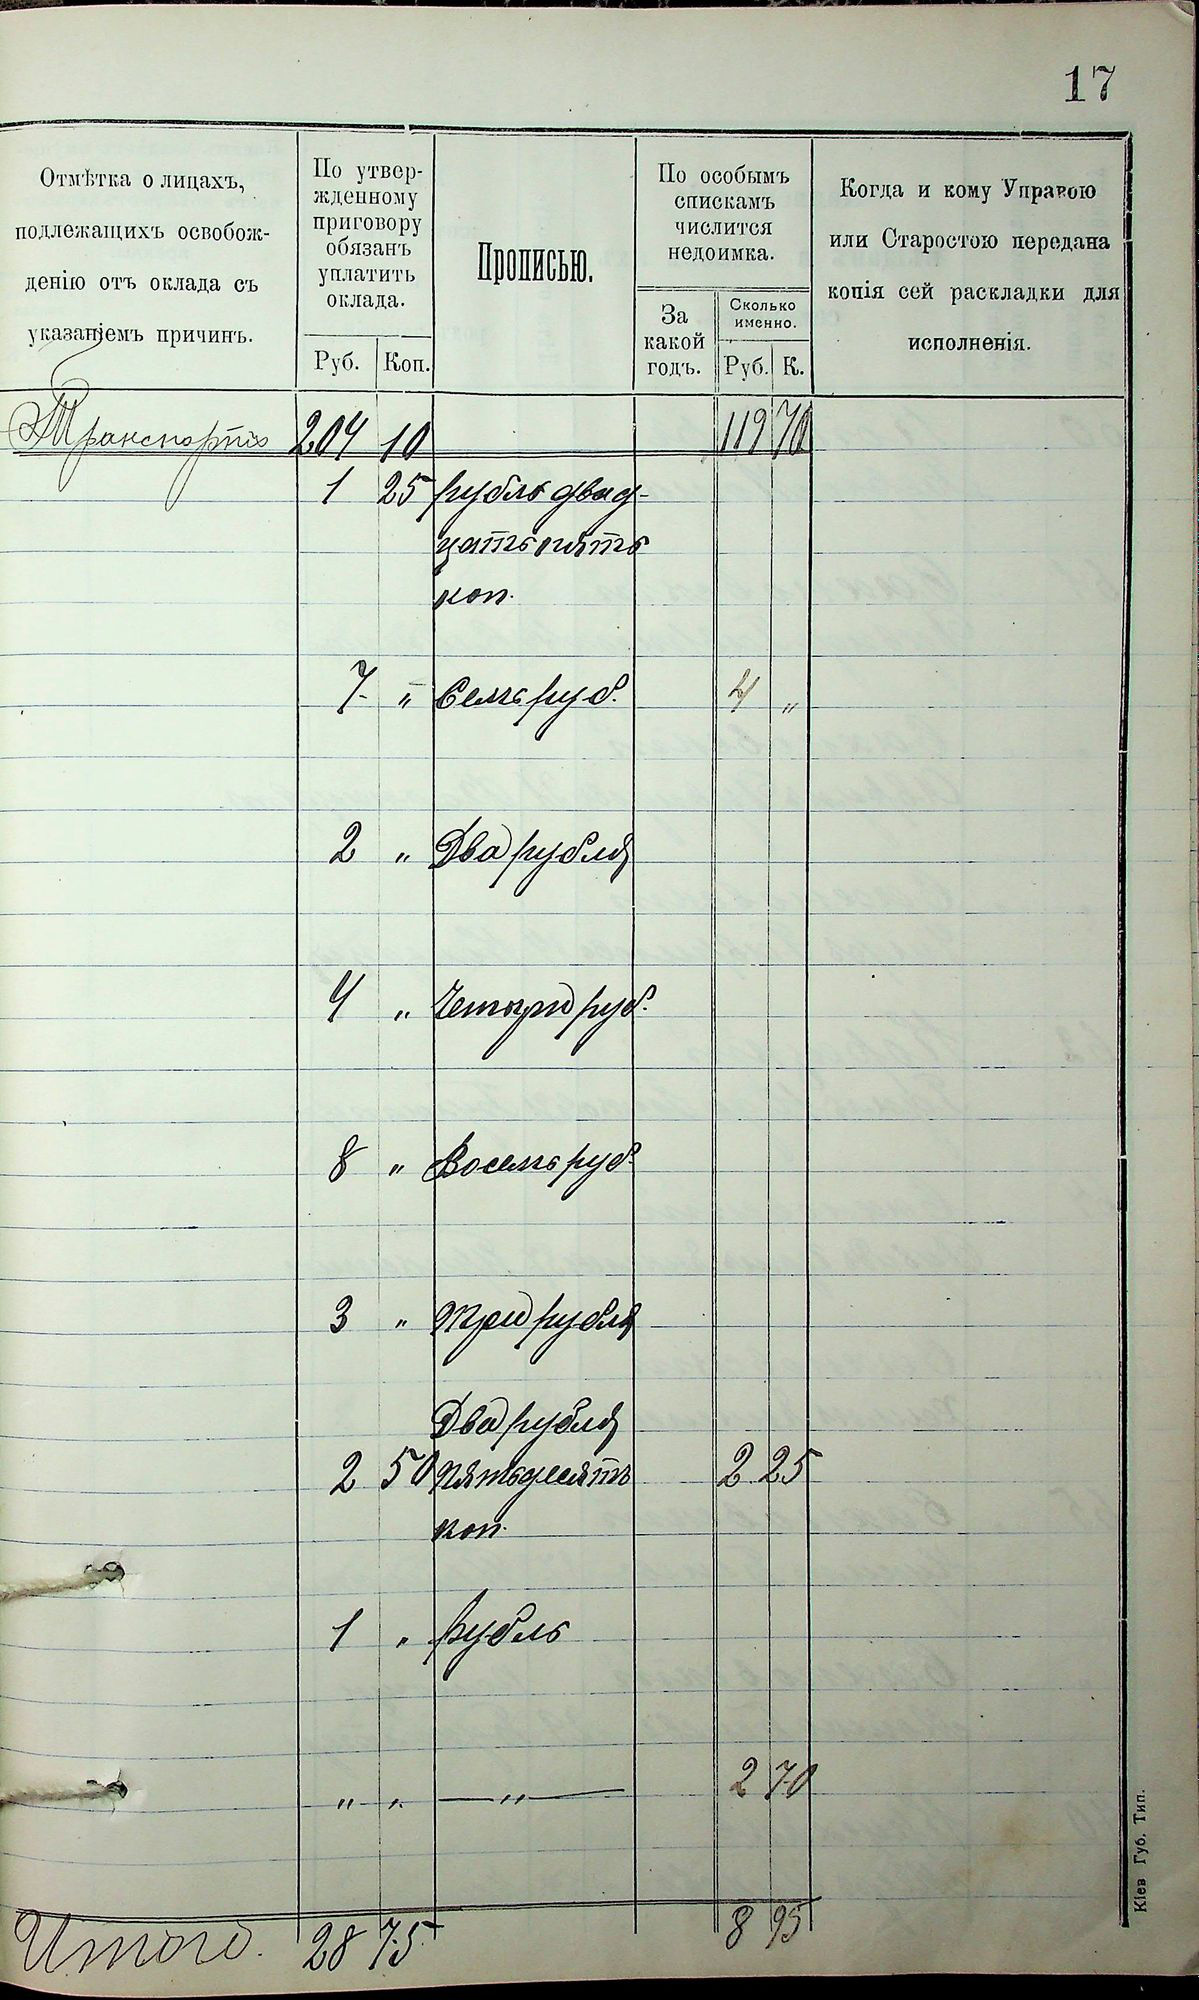 17
Отмѣтка о лицахъ,
подлежащихъ освобож-
денію отъ оклада съ
указаніемъ причинъ.
По утвер-
жденному
приговору
обязанъ
уплатить
оклада.
Руб. Коп.
Прописью.
По особымъ
спискамъ
числится
недоимка.
За
какой
годъ.
Сколько
именно.
Руб. К.
Когда и кому Управою
или Старостою передана
копія сей раскладки для
исполненія.
Транспортъ 204 10 119 70
1 25 рубль двад-
цать пять
коп.
7 " Семь руб. 4 "
2 " Два рубля
4 " Четыре руб.
8 " Восемь руб.
3 " Три рубля
Два рубля
2 50 пятьдесятъ 2 25
коп.
1 " Рубль
" " — " — 2 70
Итого. 28 75 8 95
Кіев Губ. Тип.